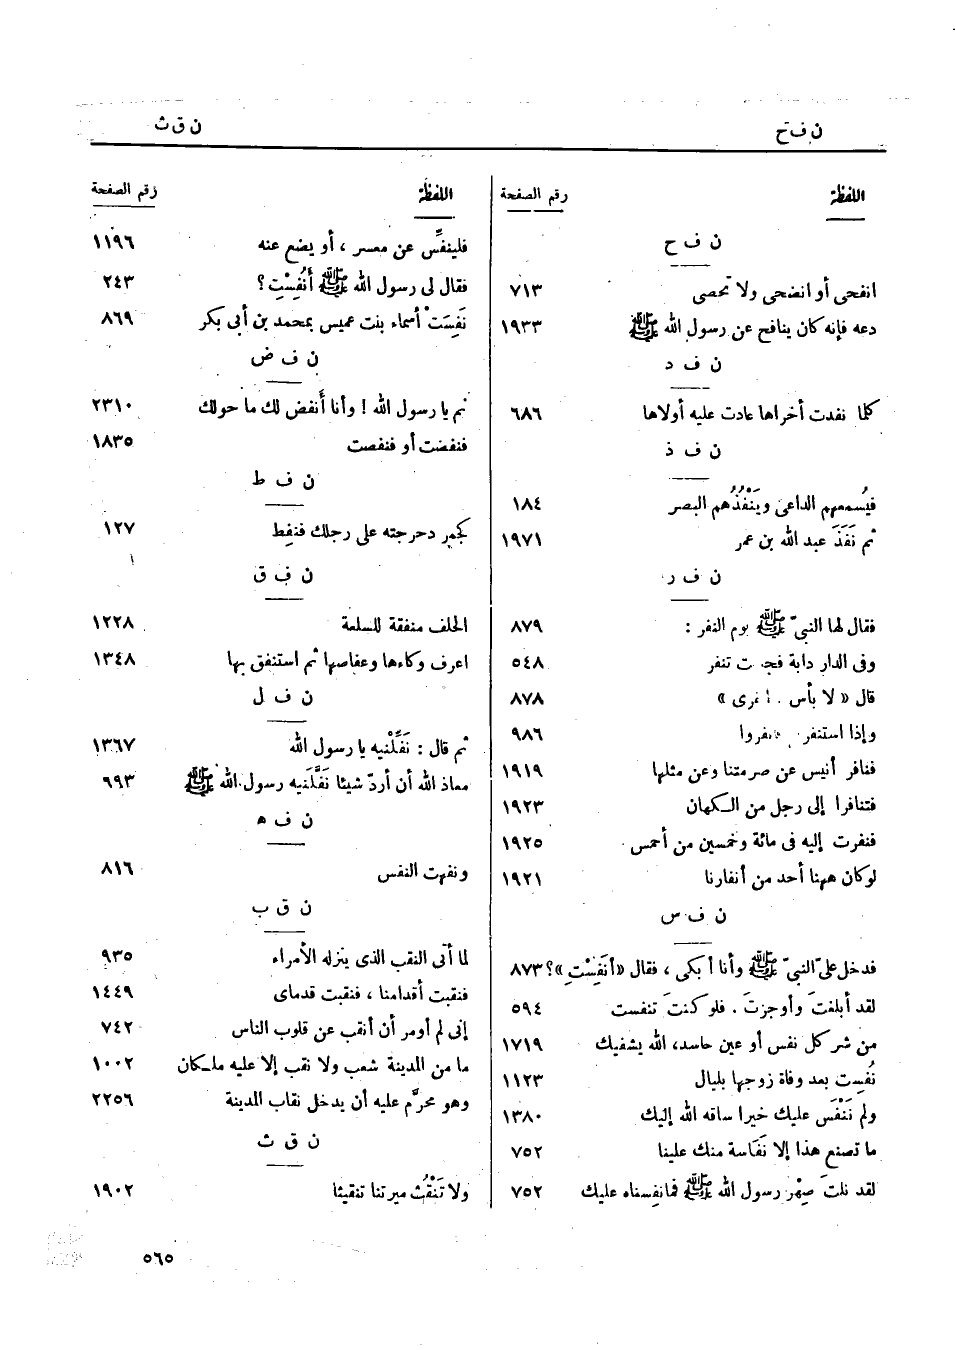 ن ف ح
ن ق ث
اللفظة
رقم الصفحة
ن ف ح
انفحى أو انضحى ولا تحصى ٧١٣
دعه فإنه كان ينافح عن رسول الله ﷺ ١٩٣٣
ن ف د
كلما نفدت أخراها عادت عليه أولاها ٦٨٦
ن ف ذ
فيُسمعهم الداعى ويَنْفُذُهم البصر ١٨٤
ثم نَفَذَ عبد الله بن عمر ١٩٧١
ن ف ر
فقال لها النبىّ ﷺ يوم النفر : ٨٧٩
وفى الدار دابة تنفر ٥٤٨
قال « لا بأس . » ٨٧٨
وإذا استنفر ٩٨٦
فنافر أنيس عن صرمتنا وعن مثلها ١٩١٩
فتنافرا إلى رجل من الكهان ١٩٢٣
فنفرت إليه فى مائة وخمسين من أحمس ١٩٢٥
لو كان ههنا أحد من أنفارنا ١٩٢١
ن ف س
فدخل علىّ النبىّ ﷺ وأنا أبكى ، فقال « أنَفِسْتِ » ؟ ٨٧٣
لقد أبلغتَ وأوجزتَ . فلو كنتَ تنفست ٥٩٤
من شر كل نفس أو عين حاسد، الله يشفيك ١٧١٩
نُفِست بعد وفاة زوجها بليال ١١٢٣
ولم نَنْفَس عليك خيرا ساقه الله إليك ١٣٨٠
ما تصنع هذا إلا نَفَاسة منك علينا ٧٥٢
لقد نلتَ صِهْر رسول الله ﷺ فما نفِسناه عليك ٧٥٢
اللفظة
رقم الصفحة
فلينفِّس عن معسر ، أو يضع عنه ١١٩٦
فقال لى رسول الله ﷺ أنُفِسْتِ ؟ ٢٤٣
نَفِسَتْ أسماء بنت عميس بمحمد بن أبى بكر ٨٦٩
ن ف ض
نم يا رسول الله ! وأنا أَنفض لك ما حولك ٢٣١٠
فنفضت أو فنفصت ١٨٣٥
ن ف ط
كجمر دحرجته على رجلك فنفِط ١٢٧
ن ف ق
الحلف منفقة للسلعة ١٢٢٨
اعرف وكاءها وعفاصها ثم استنفق بها ١٣٤٨
ن ف ل
ثم قال : نَفِّلْنيه يا رسول الله ١٣٦٧
معاذ الله أن أردّ شيئا نَفَّلَنيه رسول الله ﷺ ٦٩٣
ن ف ه
ونفهت النفس ٨١٦
ن ق ب
لما أتى النقب الذى ينزله الأمراء ٩٣٥
فنقبت أقدامنا ، فنقبت قدماى ١٤٤٩
إنى لم أومر أن أنقب عن قلوب الناس ٧٤٢
ما من المدينة شعب ولا نقب إلا عليه ملكان ١٠٠٢
وهو محرَّم عليه أن يدخل نقاب المدينة ٢٢٥٦
ن ق ث
ولا تَنْقُث ميرتنا تنقيثا ١٩٠٢
٥٦٥